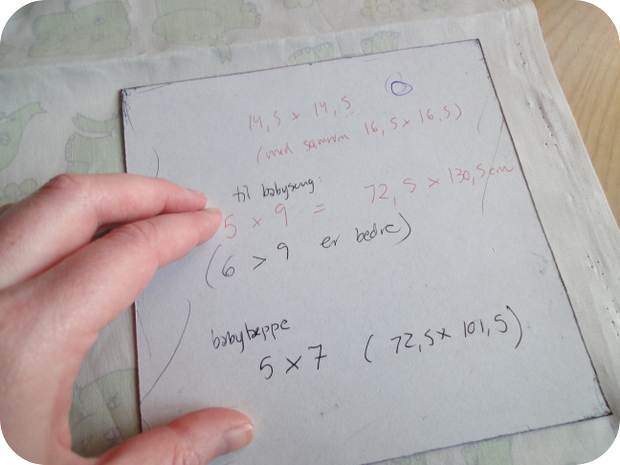 14,5 x 14,5
(med sømrom 16,5 x 16,5)
til babyseng:
5 x 9 = 72,5 x 130,5 cm
(6 > 9 er bedre)
babyteppe
5 x 7 (72,5 x 101,5)